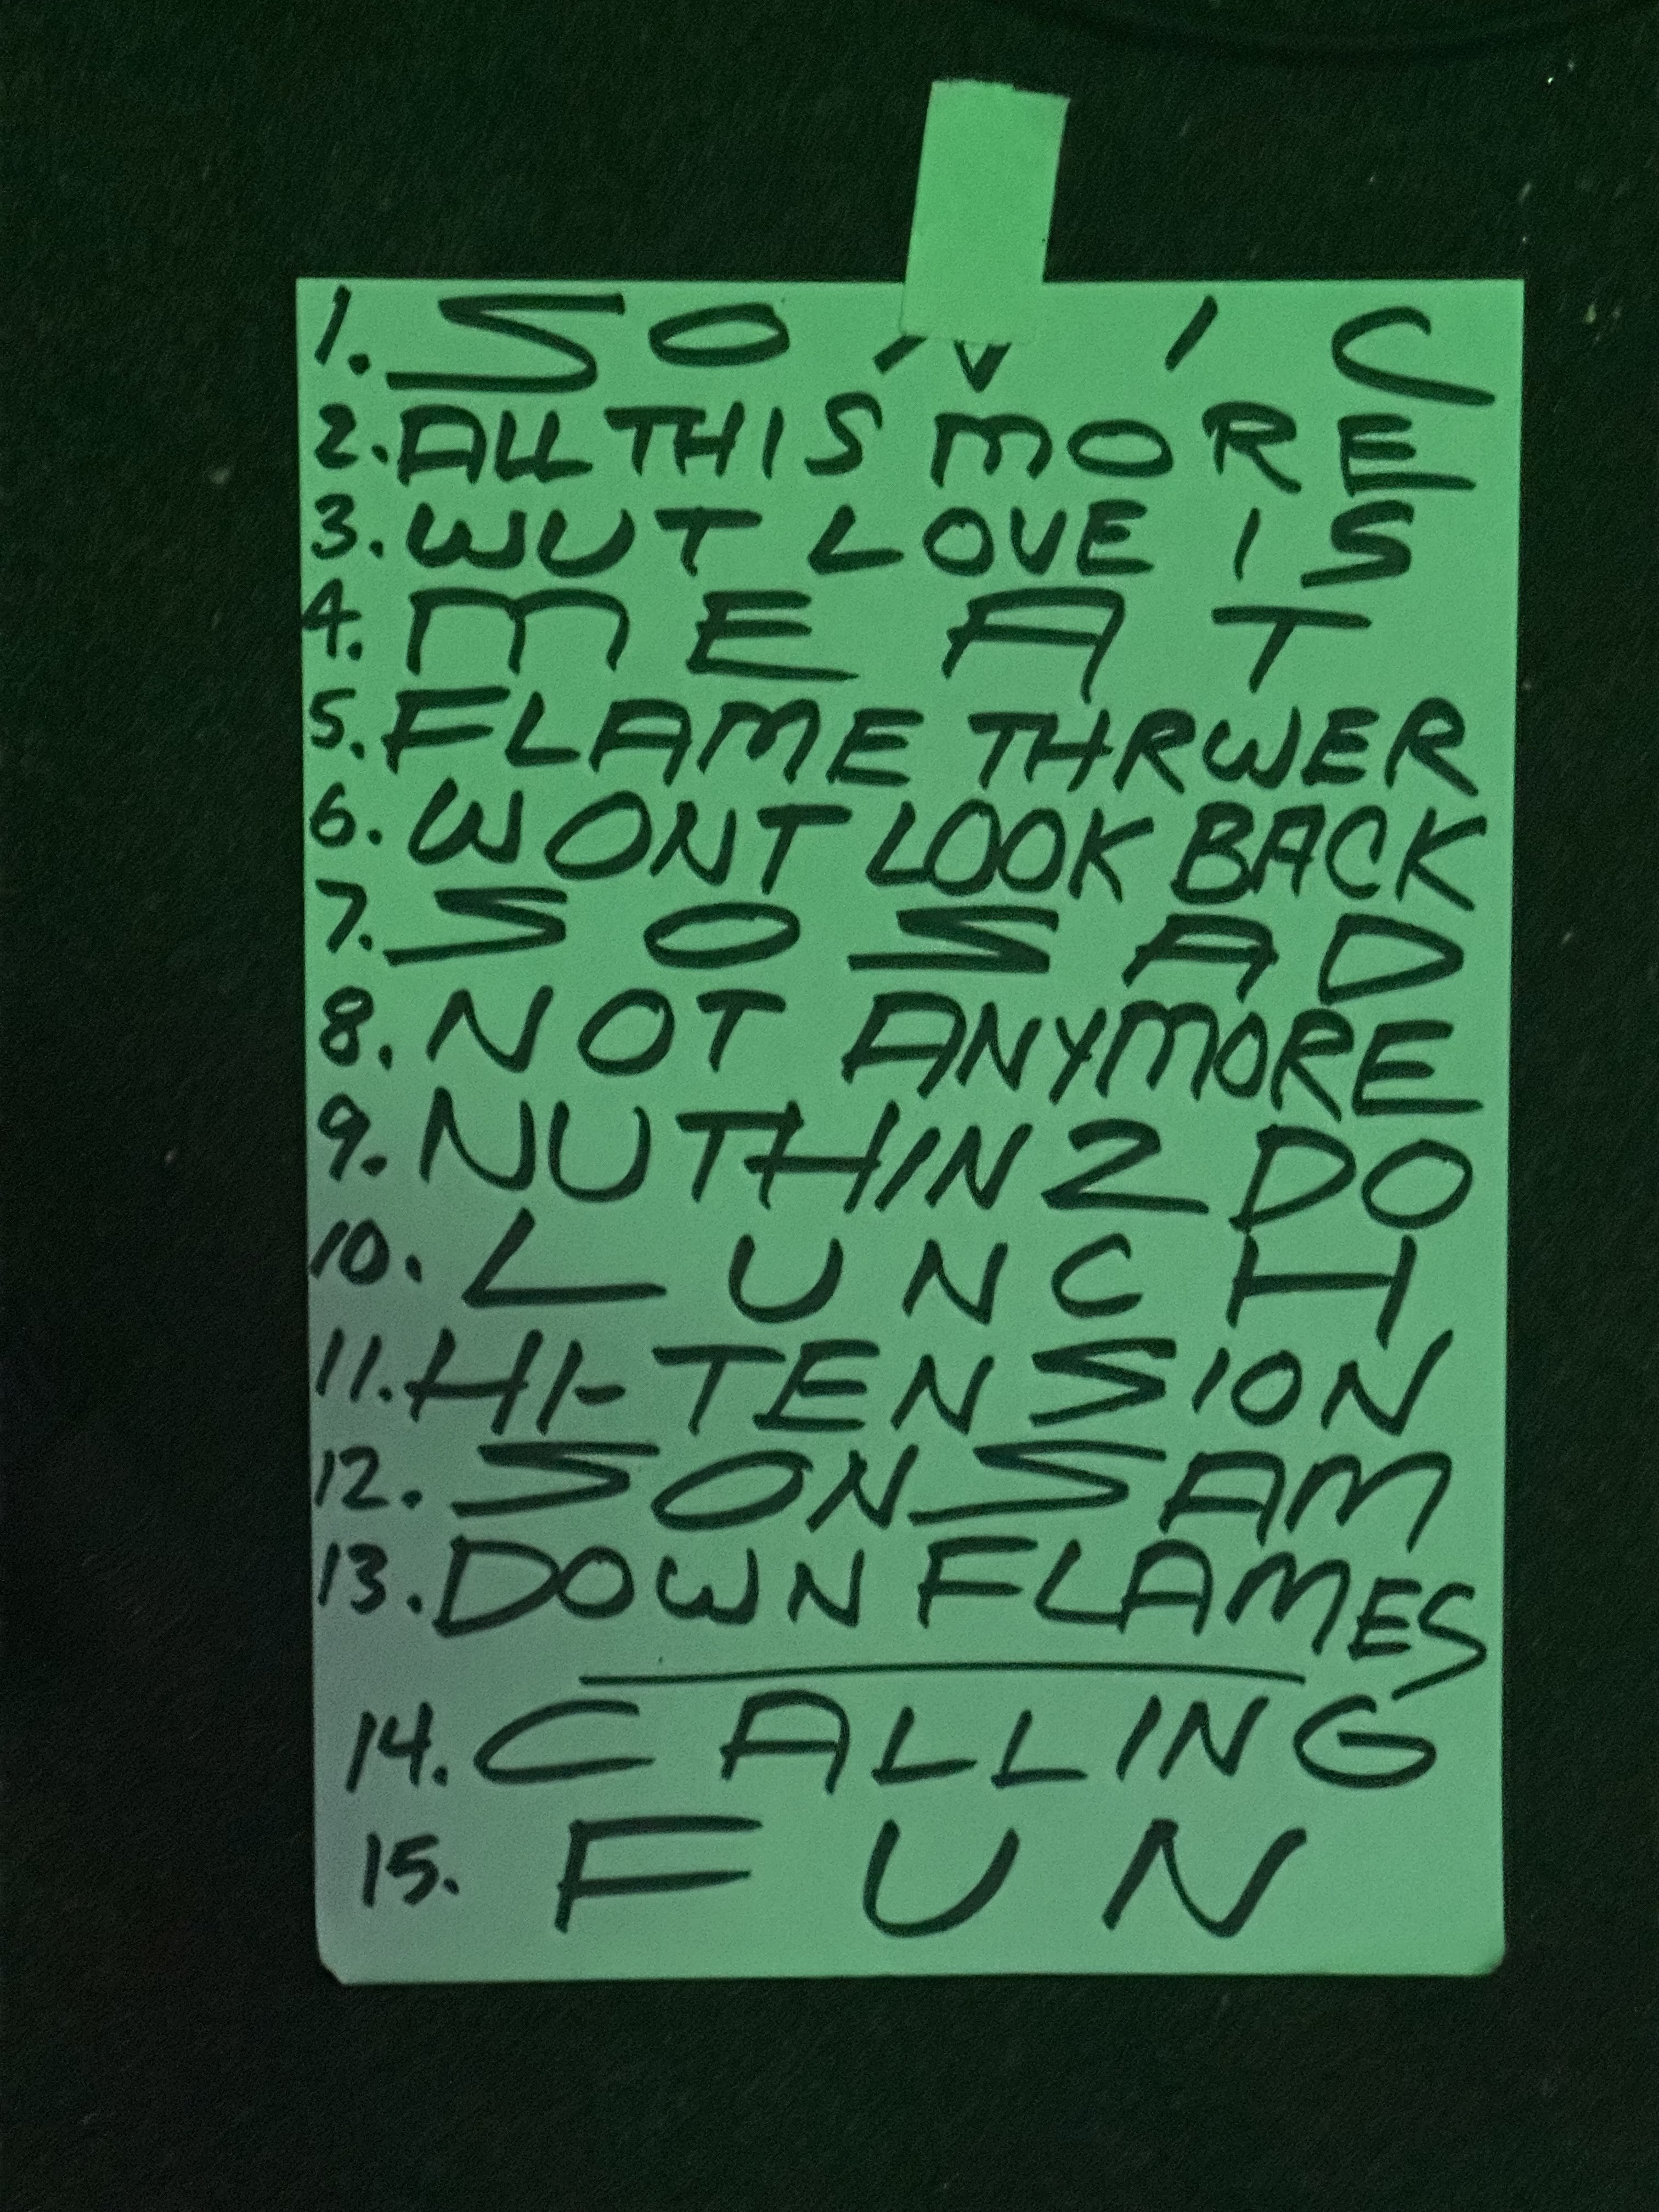 1. SONIC
2. ALL THIS MORE
3. WUT LOVE IS
4. MEAT
5. FLAME THRWER
6. WONT LOOK BACK
7. SO SAD
8. NOT ANYMORE
9. NUTHIN 2 DO
10. LUNCH
11. HI-TENSION
12. SON SAM
13. DOWN FLAMES
14. CALLING
15. FUN